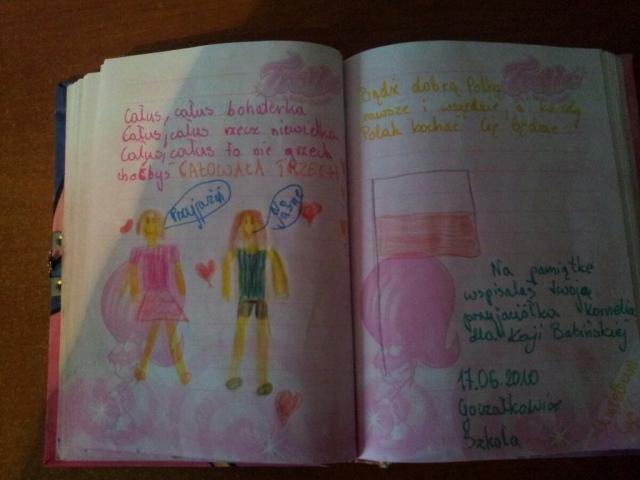 Całus, całus bohaterka
Całus, całus rzecz niewielka
Całus, całus to nie grzech
choćbyś CAŁOWAŁA TRZECH
Przyjaźń
No jasne
Bądź dobrą Polką
zawsze i wszędzie, a każdy
Polak kochać Cię będzie.
Na pamiątkę
wspisałaś twoja
przyjaciółka Kornelia
dla Kaji Babińskiej
17.06.2010
Goczałkowice
Szkoła